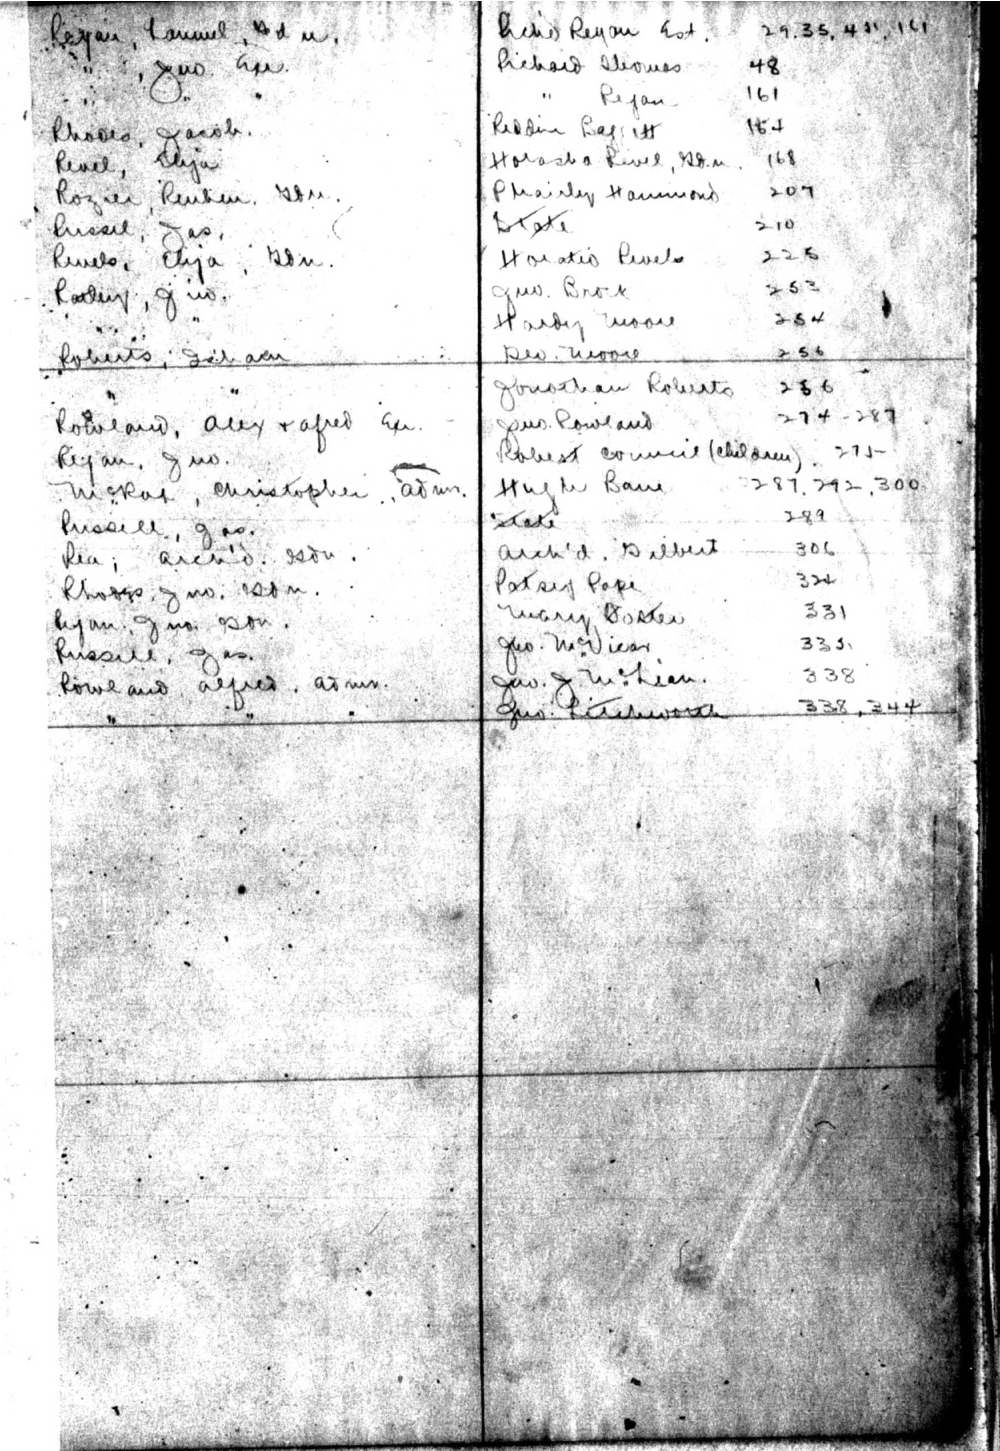 Regan, Samuel, Gdn. Rich'd Regan Est. 29.35, 161
" , Jno. Exr. Richard Thomas 48
" " " " Regan 161
Rhodes, Jacob. Reddin 164
Revel, Elija Horasha Revel, Gdn. 168
Rozier, Reuben. Gdn. Hammond 207
Russel, Jas. State 210
Revels, Elija, Gdn. Horatio Revels 225
Jno. Jno. Brock 253
" " Hardy Moore 254
Roberts, Geo. Moore 256
" " Jonathan Roberts 256
Rowland, Alex & Alfred Exr. Jno. Rowland 274-287
Regan, Jno. Robert Council (children) 275
McRae, Christopher, Admr. Hugh Bane 287, 292, 300
Russell, Jas. State 289
Rea, Arch'd. Gdn. Arch'd. Gilbert 306
Rhodes, Jno. Gdn. Patsey Pope 324
Regan, Jno. Gdn. Mary 331
Russell, Jas. Jno. McVicar 335
Rowland, Alfred. Admr. Jno. J McLean. 338
" " " Jno. Litchworth 338, 344